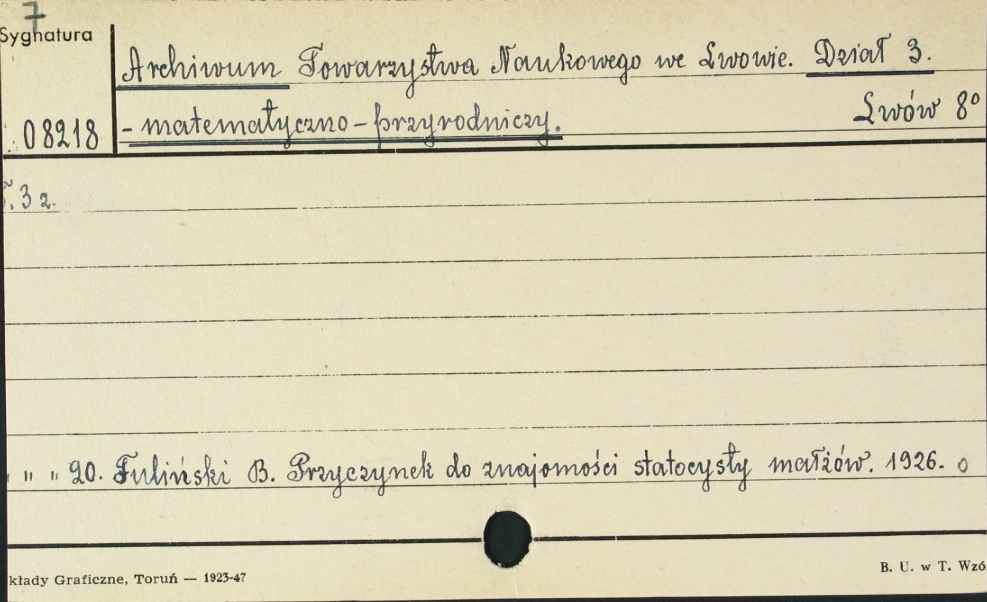 7
Sygnatura
Archiwum Towarzystwa Naukowego we Lwowie. Dział 3.
08218 - matematyczno - przyrodniczy. Lwów 8°
T. 3 z.
" " 20. Fuliński B. Przyczynek do znajomości statocysty małżów. 1926. o
kłady Graficzne, Toruń — 1923-47
B. U. w T. Wzó